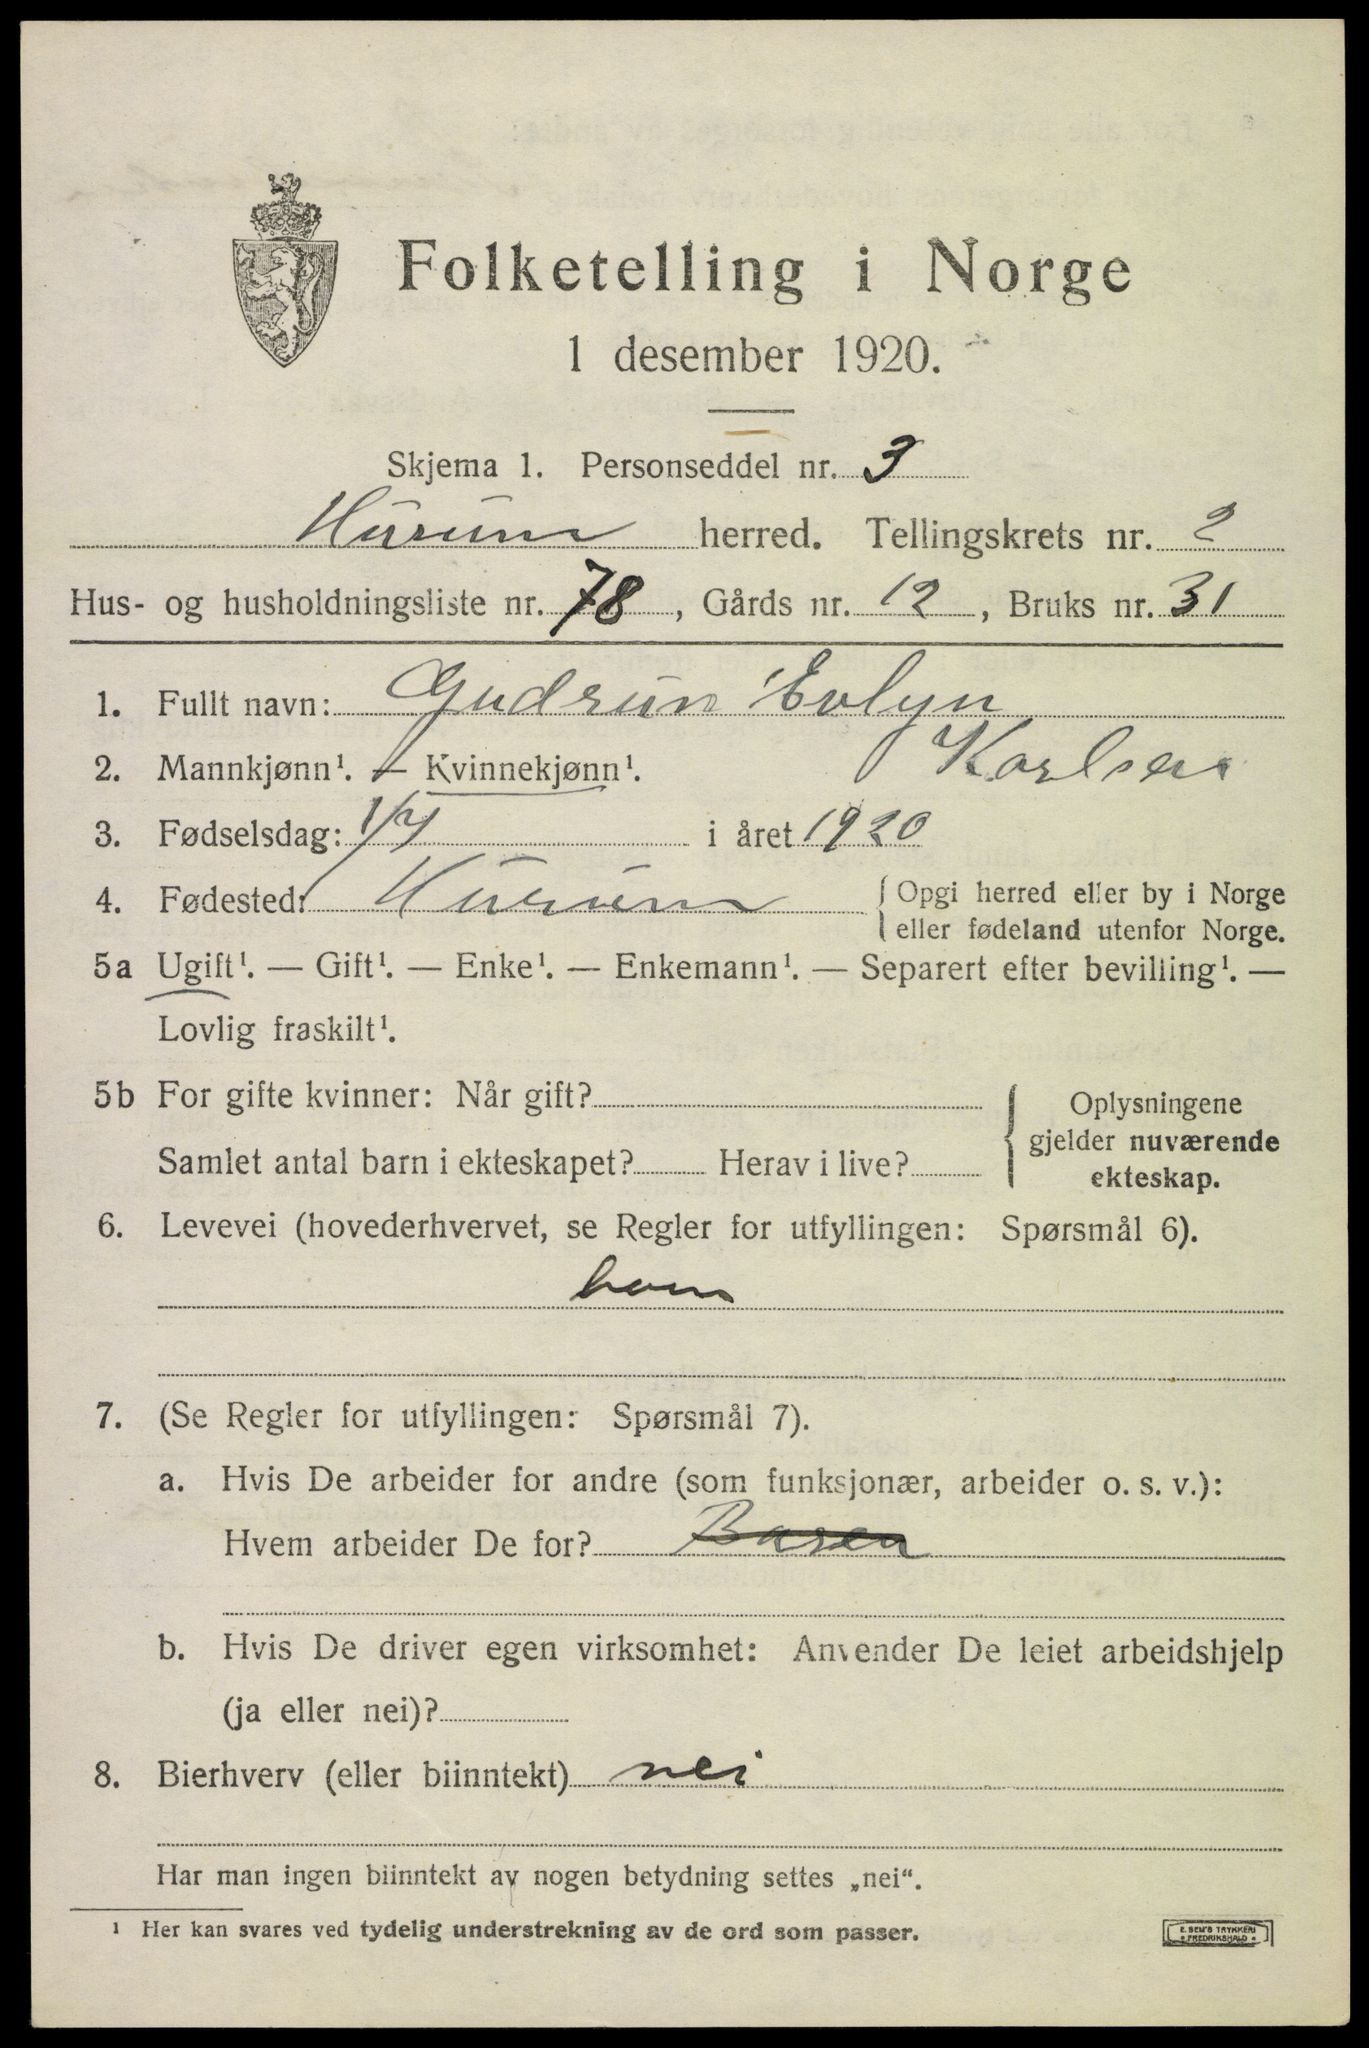 Folketelling i Norge
1 desember 1920.
Skjema 1. Personseddel nr. 3
Hurum herred. Tellingskrets nr. 2
Hus- og husholdningsliste nr. 78, Gårds nr. 12, Bruks nr. 31
1. Fullt navn: Gudrun Evlyn
2. Mannkjønn¹. — Kvinnekjønn¹. Karlsen
3. Fødselsdag: 1/7 i året 1920
4. Fødested: Hurum { Opgi herred eller by i Norge
eller fødeland utenfor Norge.
5a Ugift¹. — Gift¹. — Enke¹. — Enkemann¹. — Separert efter bevilling¹. —
Lovlig fraskilt¹.
5b For gifte kvinner: Når gift? { Oplysningene
gjelder nuværende
Samlet antal barn i ekteskapet? Herav i live?
ekteskap.
6. Levevei (hovederhvervet, se Regler for utfyllingen: Spørsmål 6).
barn
7. (Se Regler for utfyllingen: Spørsmål 7).
a. Hvis De arbeider for andre (som funksjonær, arbeider o. s. v.):
Hvem arbeider De for?
b. Hvis De driver egen virksomhet: Anvender De leiet arbeidshjelp
(ja eller nei)?
8. Bierhverv (eller biinntekt) nei
Har man ingen biinntekt av nogen betydning settes „nei“.
¹ Her kan svares ved tydelig understrekning av de ord som passer.
E. SEM'S TRYKKERI
FREDRIKSHALD